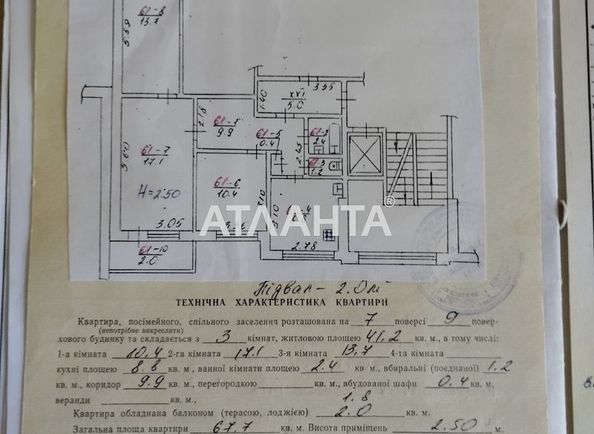 61-8
13.7
5.59
3.55
XVI
5.0
1.40
61-1
9.9
2.15
61-5
0.4
61-2
2.4
2.45
61-3
1.2
61-7
17.1
5.60
H=2.50
61-6
10.4
3.10
3.10
3.05
2.78
61-10
2.0
АТЛАНТА®
Підвал - 2.0 м²
ТЕХНІЧНА ХАРАКТЕРИСТИКА КВАРТИРИ
Квартира, посімейного, спільного заселення розташована на 7 поверсі 9 повер-
(непотрібне викреслити)
хового будинку та складається з 3 кімнат, житловою площею 41,2 кв. м, в тому числі:
1-а кімната 10,4 2-га кімната 17.1 3-я кімната 13,7 4-та кімната
кухні площею 8.8 кв. м., ванної кімнати площею 2.4 кв. м, вбиральні (поєднаної) 1.2
кв. м, коридор 9.9 кв. м., перегородкою кв. м, вбудованої шафи 0.4 кв. м,
веранди кв. м., 1.8
Квартира обладнана балконом (терасою, лоджією) 2.0 кв. м.
Загальна площа квартири 67.7 кв. м. Висота приміщень 2.50 м.